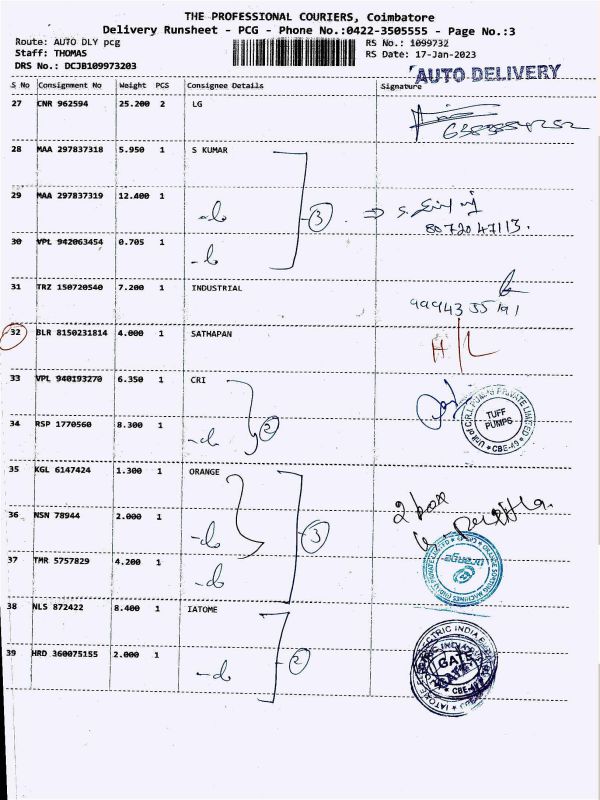 THE PROFESSIONAL COURIERS, Coimbatore
Delivery Runsheet - PCG - Phone No.:0422-3505555 - Page No.:3
Route: AUTO DLY pcg RS No.: 1099732
Staff: THOMAS RS Date: 17-Jan-2023
DRS No.: DCJB109973203
AUTO DELIVERY
S No Consignment No Weight PCS Consignee Details Signature
27 CNR 962594 25.200 2 LG
28 MAA 297837318 5.950 1 S KUMAR
29 MAA 297837319 12.400 1 -do
3 ⇒
8072047113.
30 VPL 942063454 0.705 1 -do
31 TRZ 150720540 7.200 1 INDUSTRIAL
32 BLR 8150231814 4.000 1 SATHAPAN H/L
33 VPL 940193270 6.350 1 CRI
Unit of C.R.I. PUMPS PRIVATE LIMITED
TUFF
PUMPS
CBE-49
34 RSP 1770560 8.300 1 -do 2
35 KGL 6147424 1.300 1 ORANGE
2 box
36 NSN 78944 2.000 1 -do 3
37 TMR 5757829 4.200 1 -do
38 NLS 872422 8.400 1 IATOME
GATE
CBE-49
39 HRD 360075155 2.000 1 -do 2